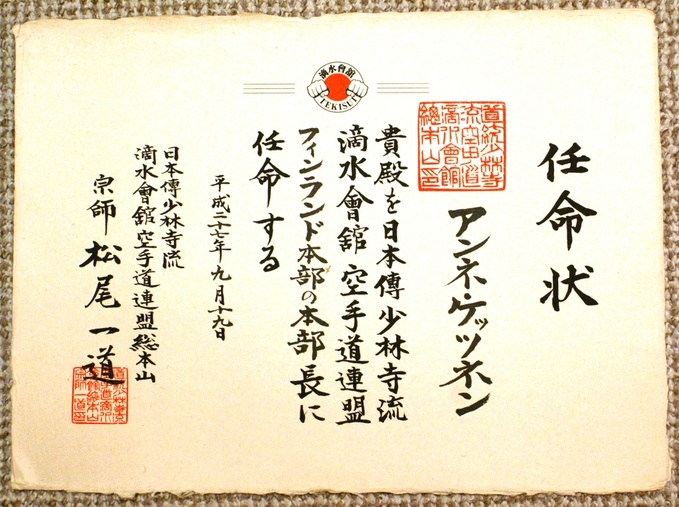 滴水會舘
TEKISUI
任命状
流空手道
滴水會館
總本山印
アンネ・ケッツネン
貴殿を日本傳少林寺流
滴水會舘空手道連盟
フィンランド本部の本部長に
任命する
平成二十七年九月十九日
日本傳少林寺流
滴水會舘空手道連盟総本山
宗師 松尾一道